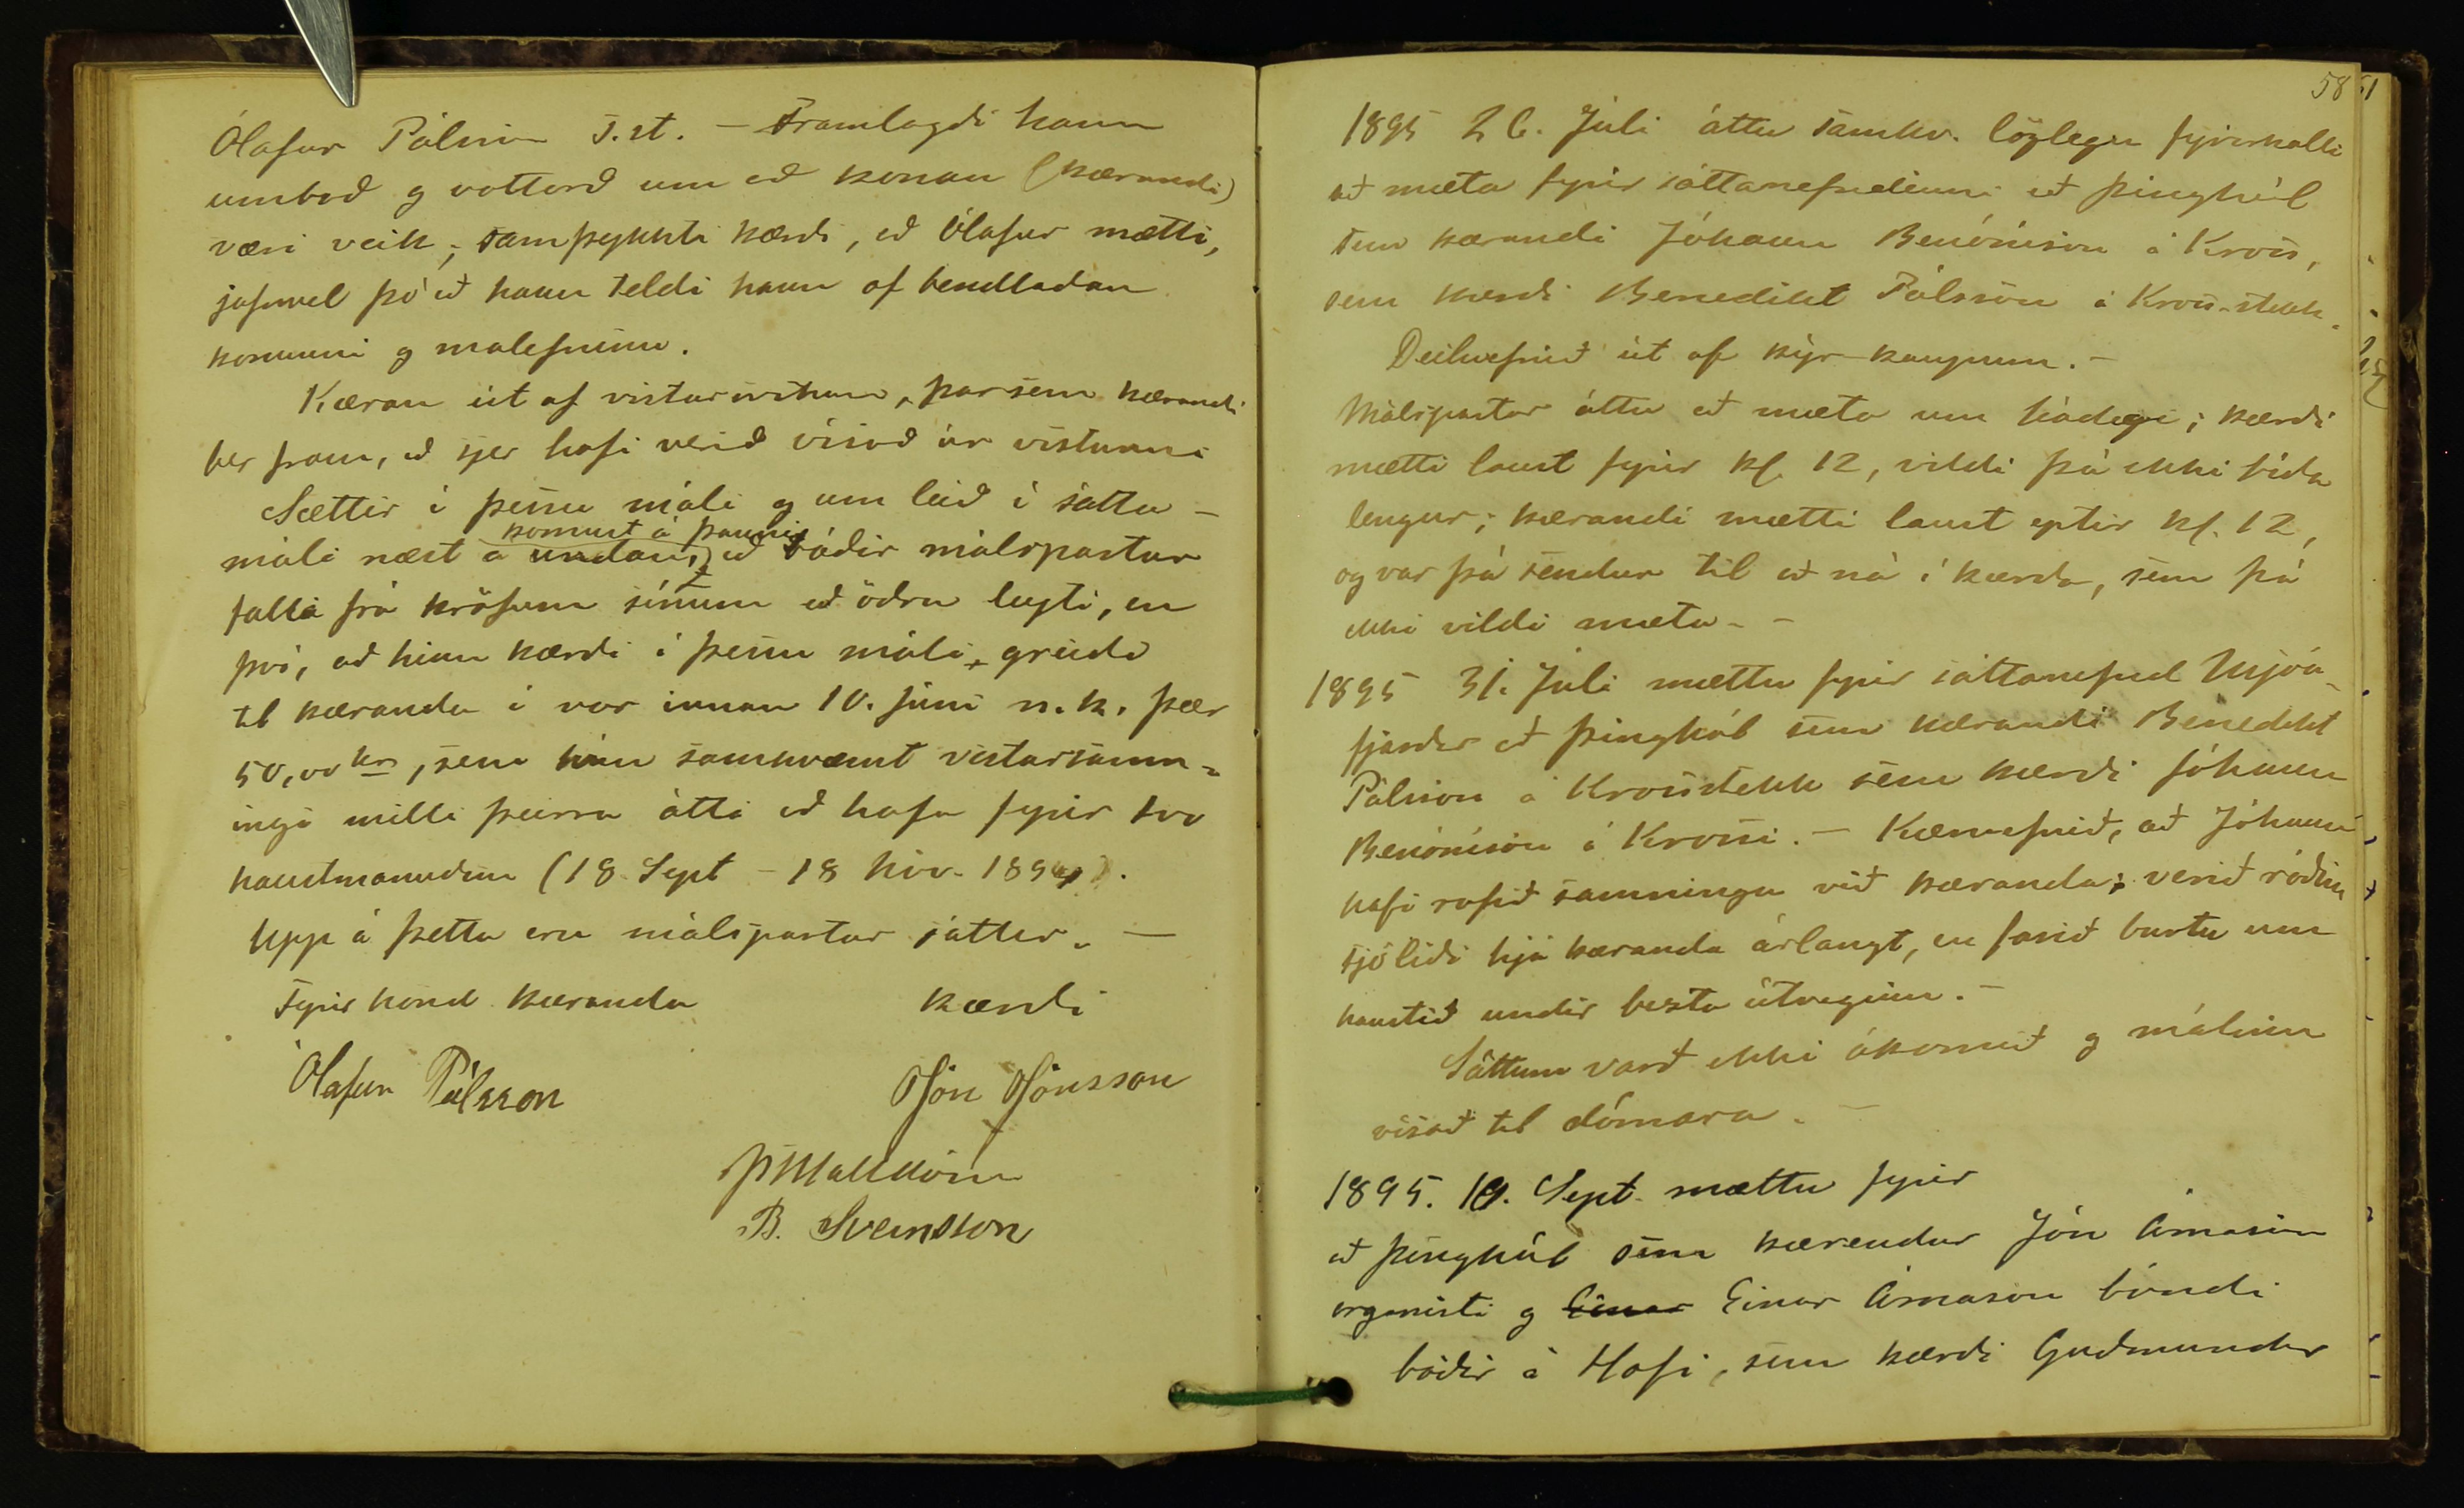 Ólafur Pálsson s.st. – Framlagði hann
umboð og vottorð um að konan (kærandi)
væri veik; samþykkti kærði, að Ólafur mætti,
jafnvel þó að hann teldi hann of bendlaðan
konunni og malefninu.
Kæran út af vistarvistum, þar sem kærandi
ber fram, að sjer hafi verið vísað úr vistinni
Sættir í þessu máli og um leið í sátta-
komust á þannig
máli næst á undan, að báðir málspartar
falli frá kröfum sínum að öðru leyti, en
því, að hinn kærði í þessu máli, greiði
til kæranda í vor innan 10. júní n.k. þær
50,00 kr, sem hún samkvæmt vistarsamn-
ingi milli þeirra átti að hafa fyrir tvo
haustmanuðina (18 Sept – 18 Nóv. 1894).
Upp á þetta eru málspartar sáttir. –
Fyrir hönd kæranda kærði
Ólafur Pálsson Jón Jónsson
B. Sveinsson
58 51
1895 26. Júli áttu samkv. löglegu fyrirkalli
að mæta fyrir sáttanefndinni að Þinghól
sem kærandi Jóhann Benónísson á Kross,
sem kærði Benedikt Pálsson á Kross-stekk.
Deiluefnið út af kýr-kaupum. –
Málspartar áttu að mæta um hádegi; kærði
mætti laust fyrir kl. 12, vildi þá ekki bíða
lengur; kærandi mætti laust eptir kl. 12,
og var þá sendur til að ná í kærða, sem þá
ekki vildi mæta. –
1895 31. Júli mættu fyrir sáttanefnd Mjóa-
fjarðar að Þinghól sem kærandi Benedikt
Pálsson á Krosstekk sem kærði Jóhann
Benónísson á Krossi. – Kæruefnið, að Jóhann
hafi rofið samninga við kæranda; verið ráðinn
sjóliði hjá kæranda árlangt, en farið burtu um
haustið undir besta útveginn. –
Sáttum varð ekki ákomið og málinu
vísað til dómara. –
1895. 19. Sept. mættu fyrir
að Þinghól sem kærendur Jón Árnason
organisti og Einar Einar Árnason bóndi
báðir á Hofi, sem kærði Guðmundur